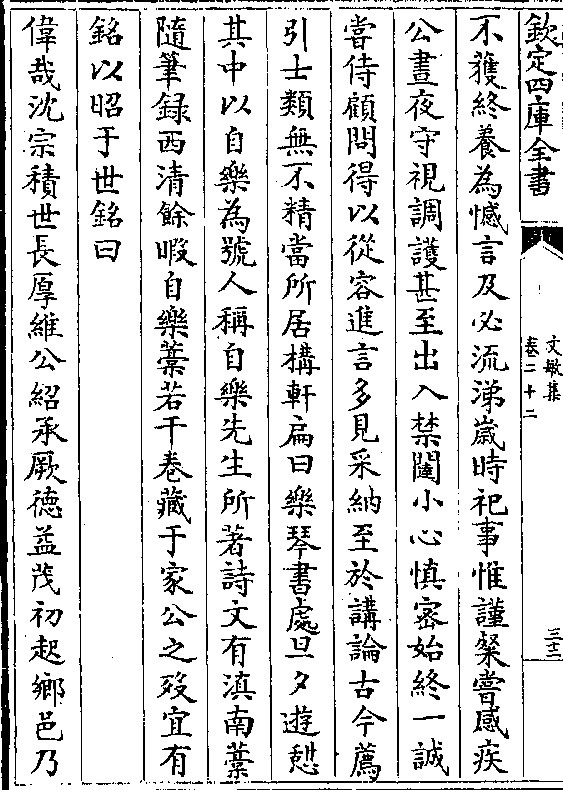 欽定四庫全書
文敏集
卷二十二
三十二
不獲終養為憾言及必流涕歲時祀事惟謹粲嘗感疾
公晝夜守視調護甚至出入禁闥小心慎密始終一誠
嘗侍顧問得以從容進言多見采納至於講論古今薦
引士類無不精當所居構軒扁曰樂琴書處旦夕遊憩
其中以自樂為號人稱自樂先生所著詩文有滇南藁
隨筆録西清餘暇自樂藁若干卷藏于家公之歿宜有
銘以昭于世銘曰
偉哉沈宗積世長厚維公紹承厥德益茂初起鄉邑乃